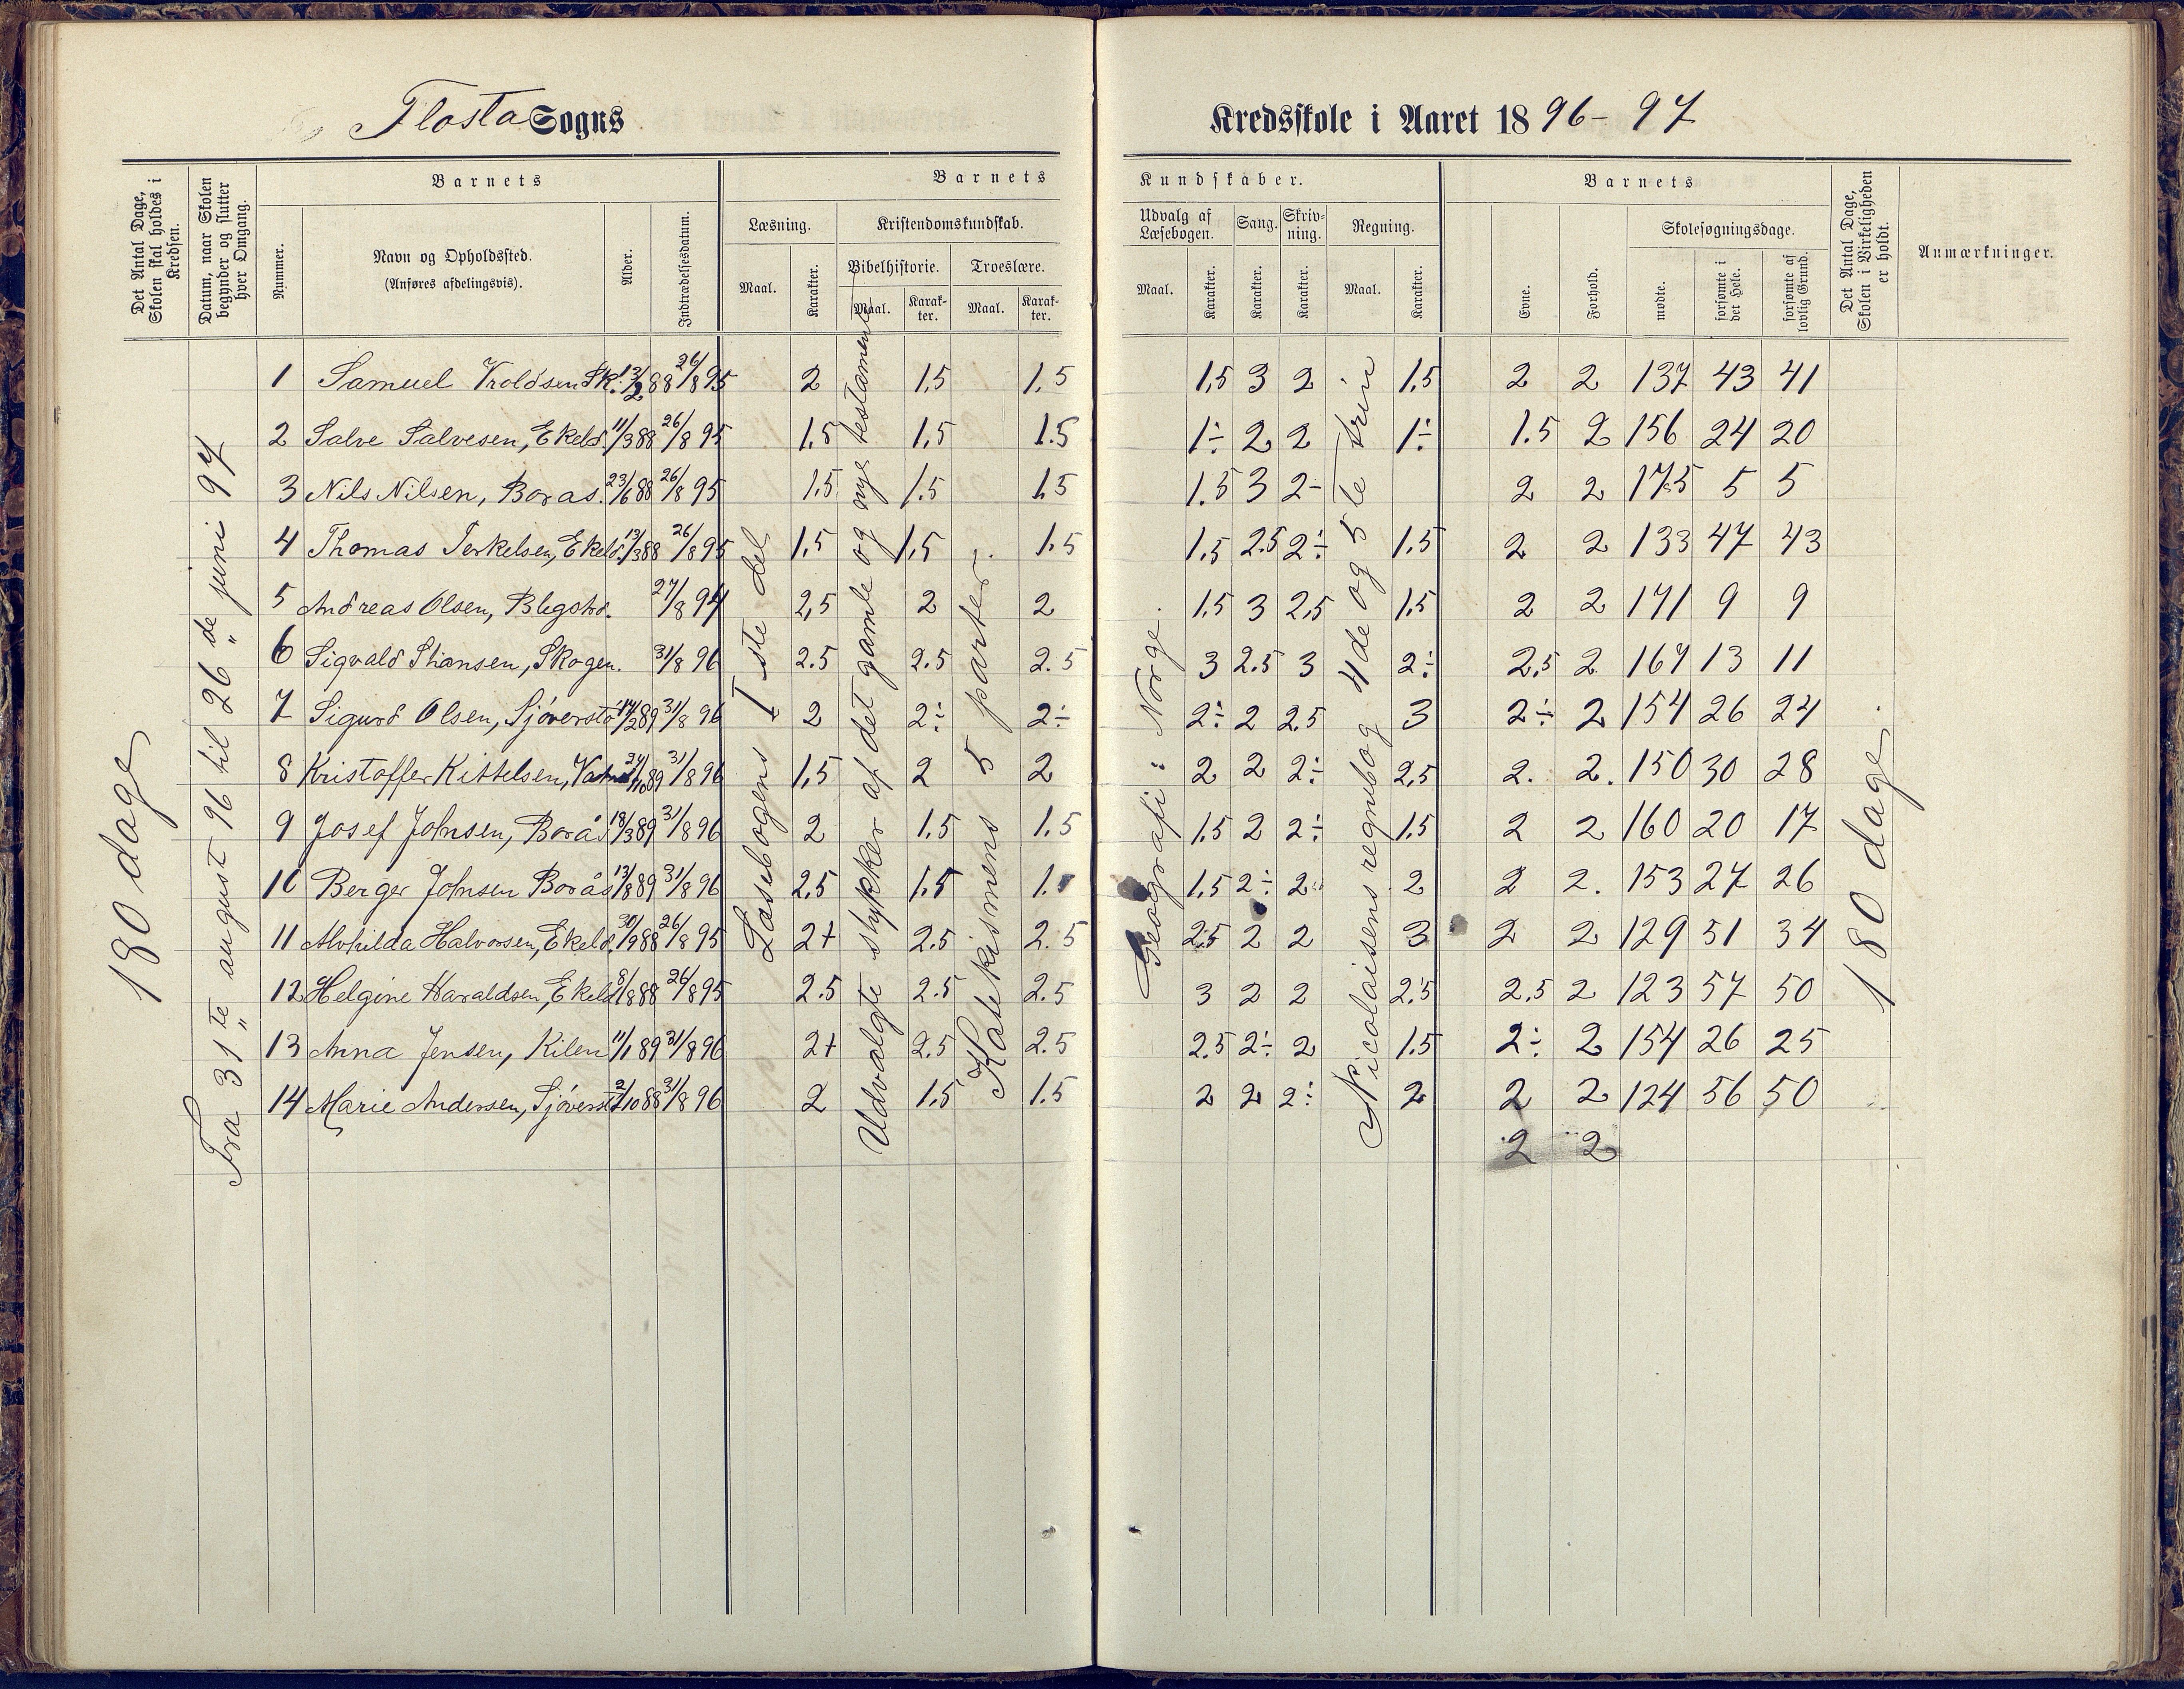 Flosta Sogns
Kredsskole i Aaret 1896-97
Det Antal Dage, Skolen skal holdes i Kredsen.
Datum, naar Skolen begynder og slutter hver Omgang.
Barnets
Nummer.
Navn og Opholdssted.
(Anføres afdelingsvis).
Alder.
Indtrædelsesdatum.
Barnets
Læsning.
Maal.
Karakter.
Kristendomskundskab.
Bibelhistorie.
Maal.
Karakter.
Troeslære.
Maal.
Karakter.
Kundskaber.
Udvalg af Læsebogen.
Maal.
Karakter.
Sang.
Karakter.
Skrivning.
Karakter.
Regning.
Maal.
Karakter.
Barnets
Evne.
Forhold.
Skolesøgningsdage.
mødte.
forsømte i det Hele.
forsømte af lovlig Grund.
Det Antal Dage, Skolen i Virkeligheden er holdt.
Anmærkninger.
180 dage
Fra 31te august 96 til 26de juni 97
Læsebogens I ste del
Udvalgte stykker af det gamle og nye testamente
Katekismens 5 parter.
Geografi: Norge.
Nicolaisens regnebog 4de og 5te trin
180 dage.
1 Samuel Vroldsen Sk. 13/2 88 26/8 95 2 1,5 1,5 1,5 3 2 1,5 2 2 137 43 41
2 Salve Salvesen, Ekeld. 11/3 88 26/8 95 1,5 1,5 1.5 1÷ 2 2 1÷ 1.5 2 156 24 20
3 Nils Nilsen, Borås. 23/6 88 26/8 95 1.5 1.5 1.5 1.5 3 2- 2 2 175 5 5
4 Thomas Terkelsen, Ekeld. 13/3 88 26/8 95 1,5 1,5 1.5 1,5 2.5 2÷ 1.5 2 2 133 47 43
5 Andreas Olsen, 27/8 94 2,5 2 2 1.5 3 2,5 1,5 2 2 171 9 9
6 Sigvald Shansen, Skogen. 31/8 96 2.5 2.5 2.5 3 2.5 3 2÷ 2,5 2 167 13 11
7 Sigurd Olsen, Sjöverstö 14/2 89 31/8 96 2 2÷ 2÷ 2÷ 2 2.5 3 2÷ 2 154 26 24
8 Kristoffer Kittelsen, 89 31/8 96 1,5 2 2 2 2 2÷ 2,5 2. 2. 150 30 28
9 Josef Johnsen, Borås 18/3 89 31/8 96 2 1.5 1.5 1.5 2 2÷ 1.5 2 2 160 20 17
10 Berger Johnsen Borås 13/8 89 31/8 96 2,5 1,5 1.5 1.5 2÷ 2 2 2 2. 153 27 26
11 Alvhilda Halvorsen, Ekeld. 30/9 88 26/8 95 2+ 2.5 2.5 2.5 2 2 3 2 2 129 51 34
12 Helgine Haraldsen, Ekeld 8/8 88 26/8 95 2.5 2.5 2.5 3 2 2 2.5 2,5 2 123 57 50
13 Anna Jensen, Kilen 11/1 89 31/8 96 2+ 2.5 2.5 2.5 2÷ 2 1.5 2÷ 2 154 26 25
14 Marie Andersen, Sjöverst 2/10 88 31/8 96 2 1.5 1.5 2 2 2÷ 2 2 2 124 56 50
2 2